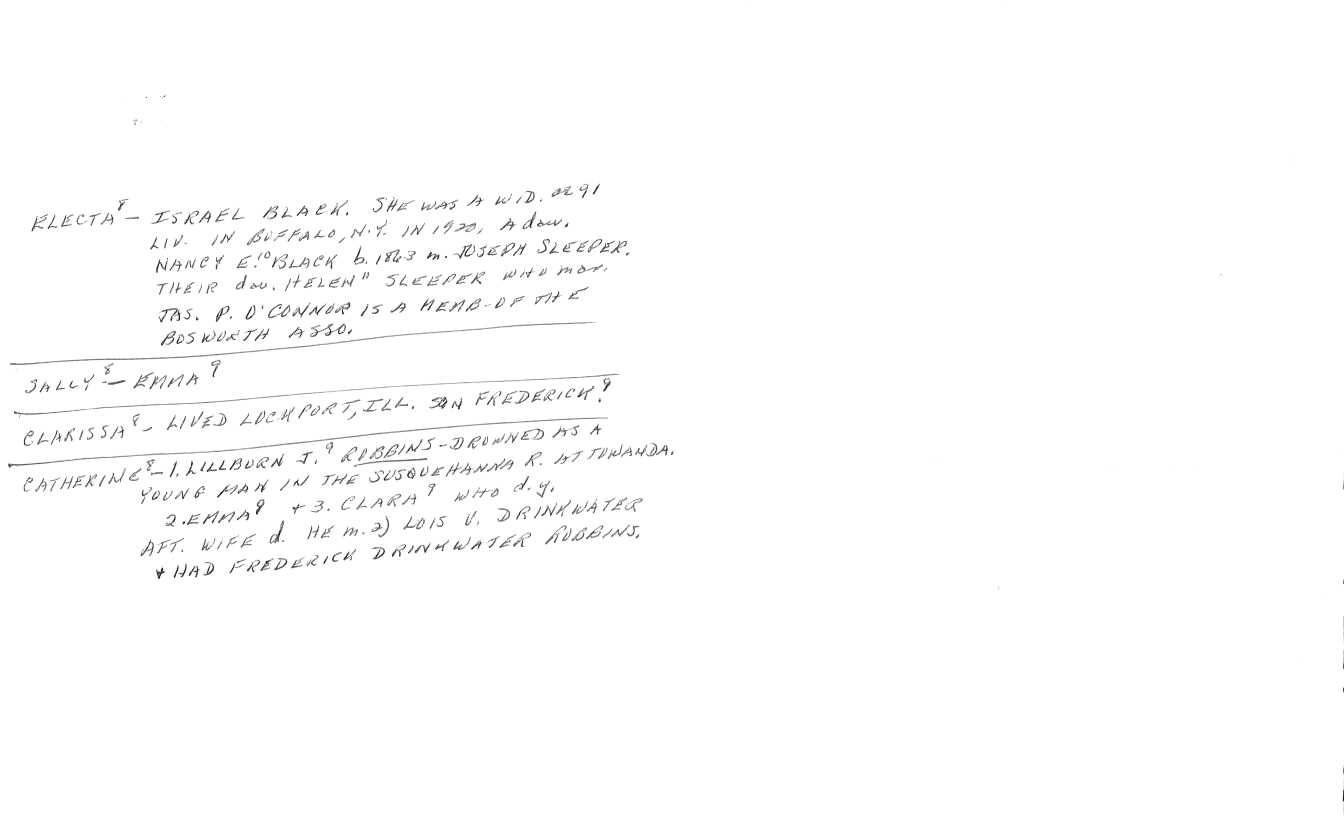 ELECTA⁸ — ISRAEL BLACK. SHE WAS A WID. AE 91
LIV. IN BUFFALO, N.Y. IN 1920, A dau.
NANCY E.¹⁰ BLACK b. 1863 m. JOSEPH SLEEPER.
THEIR dau. HELEN¹¹ SLEEPER WHO mar.
JAS. P. O'CONNOR IS A MEMB-OF THE
BOSWORTH ASSO.
SALLY⁸ — EMMA⁹
CLARISSA⁸ - LIVED LOCKPORT, ILL. SON FREDERICK.⁹
CATHERINE⁸ - 1. LILLBURN J.⁹ ROBBINS - DROWNED AS A
YOUNG MAN IN THE SUSQUEHANNA R. AT TOWANDA.
2. EMMA⁹ + 3. CLARA⁹ WHO d.y.
AFT. WIFE d. HE m. 2) LOIS V. DRINKWATER
+ HAD FREDERICK DRINKWATER ROBBINS.